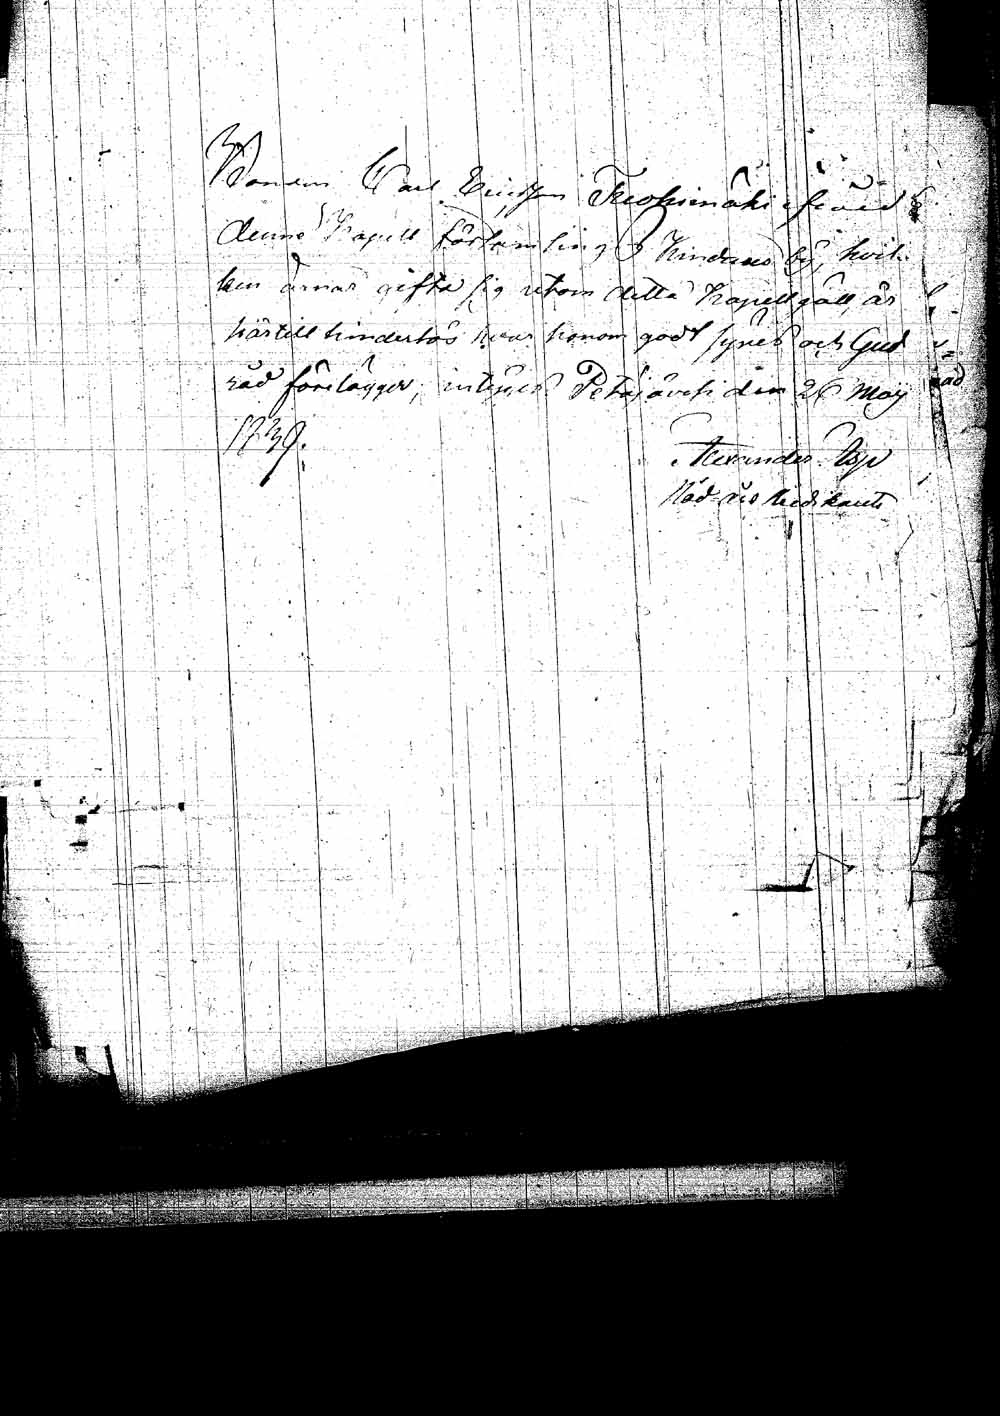 Bonden Carl Ericsson ifrån
denne Kapell församling by, hvil-
ken ärnar gifta sig utom detta Kapellgäll, är
härtill hinderlös hvar honom godt synes och Gud
råd förelägger; intygas Petäjävesi den 26 Maij
1739.
Alexander Asp